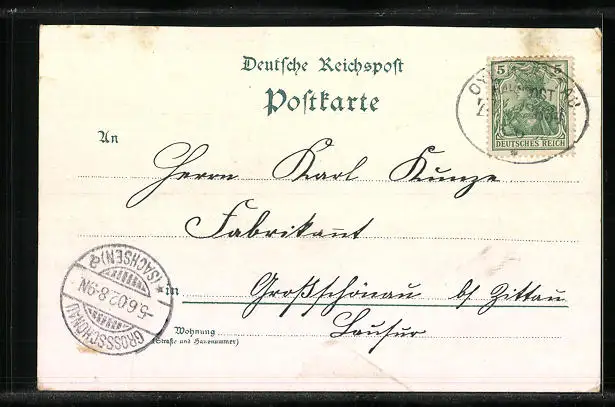 Deutsche Reichspost
Postkarte
5 5
DEUTSCHES REICH
An
Herrn Karl Kunze
Fabrikant
in Großschönau b/ Zittau
Wohnung
(Straße und Hausnummer)
GROSSSCHÖNAU
(SACHSEN)
5.6.02.8-9N